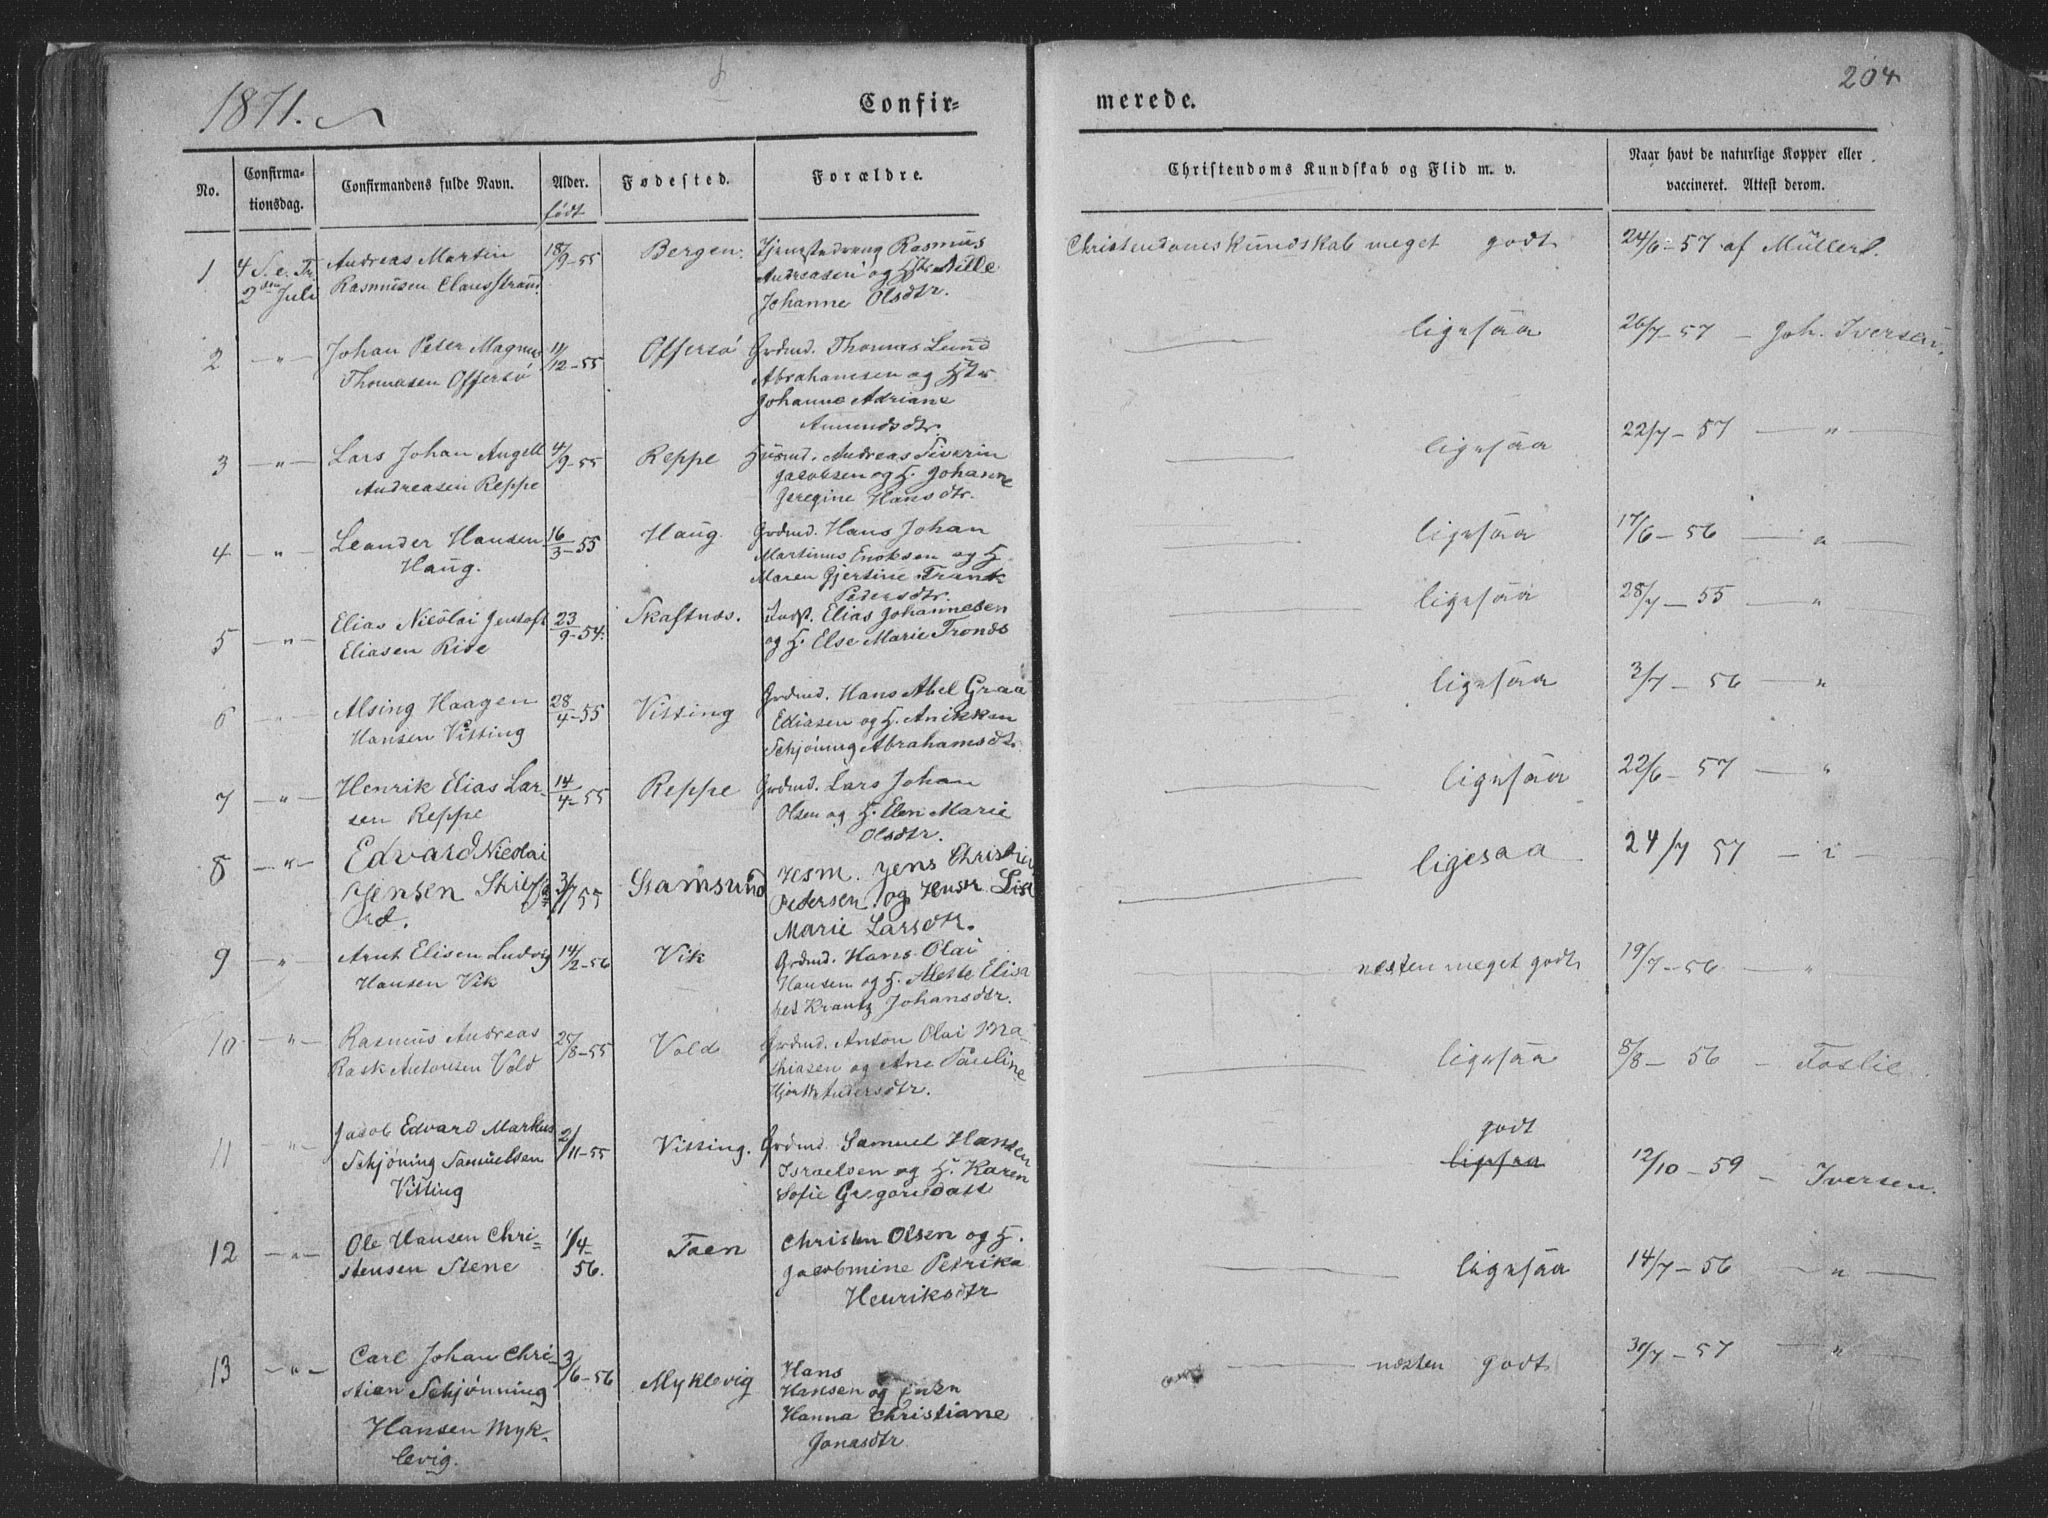 1871.
204
Confir=
merede.
No.
Confirma-
tionsdag.
Confirmandens fulde Navn.
Alder.
født
Fødested.
Forældre.
Christendoms Kundskab og Flid m. v.
Naar havt de naturlige Kopper eller
vaccineret. Attest derom.
1 4 S. e. Tr. Andreas Martin 18/9-55 Bergen. Rasmus Christendomskundskab meget godt 24/6-57 af Müller
2den Juli Rasmusen Clausstrand Andreasen og Hstr.
Johanne Olsdtr.
2 -"- Johan Peter Magnus 11/12-55 Offersø Grdmd. Thomas Lund ligesaa 26/7-57 - Joh. Iversen.
Thomasen Offersø Abrahamsen og Hstr
Johanne Adriane
Amundsdtr.
3 -"- Lars Johan Angell 4/9-55 Reppe Husmd. Andreas Severin ligesaa 22/7-57 -"-
Andreasen Reppe Jacobsen og H. Johanne
Jeregine Hansdtr.
4 -"- Leander Hansen 16/3-55 Haug. Grdmd. Hans Johan ligesaa 17/6-56 -"-
Haug. Martinus Enoksen og H.
Maren Gjertine Trank
Pedersdtr.
5 -"- Elias Nicolai Gustaf 23/9-54. Skaftnæs. Indst. Elias Johannesen ligesaa 28/7-55 -"-
Eliasen Rise og H. Else Marie Tronds
6 -"- Alsing Haagen 28/4-55 Vitting Grdmd. Hans Abel Graa ligesaa 3/7-56 -"-
Hansen Vitting Eliasen og H. Anikken
Schjöning Abrahamsdtr.
7 -"- Henrik Elias Lar- 14/4-55 Reppe Grdmd. Lars Johan ligesaa 22/6-57 -"-
sen Reppe Olsen og H. Elen Marie
Olsdtr.
8 -"- Edvard Nicolai 3/7 55 Stamsund Hsm. Jens Christian ligesaa 24/7 57 -"-
Jensen Pedersen og Hustr. Lise
rd. Marie Larsdtr.
9 -"- Arnt Elisen Ludvig 14/2-56 Vik Grdmd. Hans Olai næsten meget godt 19/7-56 -"-
Hansen Vik Hansen og H. Mette Elisa
bet Krantz Johansdtr.
10 -"- Rasmus Andreas 25/8-55 Vold Grdmd. Anton Olai Ma- ligesaa 8/8-56 - Foslie
Rask Antonsen Vold thiasen og Ane Pauline
Hjorth Andersdtr.
11 -"- Jacob Edvard Markus 2/11-55 Vitting. Grdmd. Samuel Hansen godt
Schjöning Samuelsen Israelsen og H. Karen ligesaa 12/10-59 - Iversen.
Vitting Sofie Gregoriusdatt
12 -"- Ole Hansen Chri- 1/4- Taen Christen Olsen og H. ligesaa 14/7-56 -"-
stensen Stene 56. Jacobmine Petrika
Henriksdtr
13 -"- Carl Johan Chri- 3/6-56 Myklevig Hans næsten godt 30/7-57 -"-
stian Schjønning Hansen og
Hansen Myk- Hanna Christiane
levig. Jonasdtr